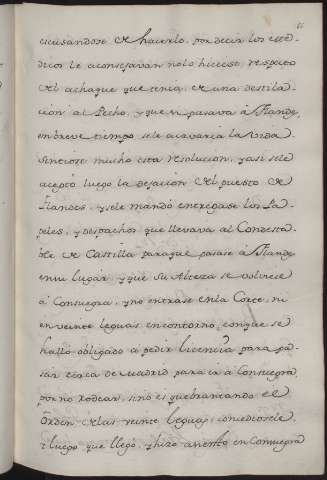 escusandose de hacerlo, por decir los Me-
dicos le aconsejavan no lo hiciese, respeto
del achaque que tenia, de una destila-
cion al Pecho, y que si pasava à Flandes,
en breve tiempo se le acavaria la vida.
Sintiose mucho esta resolucion, y asi se le
acepto luego la dejacion del puesto de
Flandes, y se le mandò entregase los Pa-
peles, y despachos que llevava al Condesta-
ble de Castilla para que pasase à Flandes
en su lugar, y que su Alteza se volviese
à Consuegra, y no entrase en la Corte, ni
en veinte leguas en contorno, con que se
hallò obligado a pedir licencia para pa-
sar cerca de Madrid para ir à Consuegra,
por no rodear, sino es quebrantando el
Orden de las veinte leguas, concediosele
y luego que llegò, y hizo asiento en Consuegra